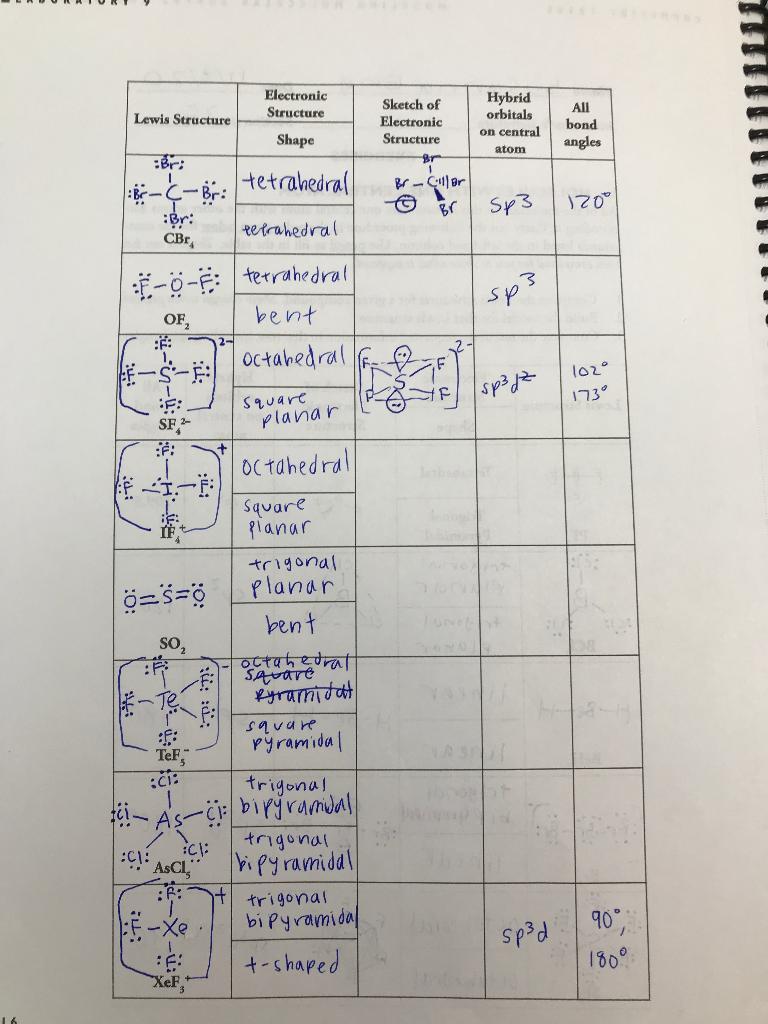 Lewis Structure
Electronic
Structure
Shape
Sketch of
Electronic
Structure
Hybrid
orbitals
on central
atom
All
bond
angles
:Br:
:Br–C–Br:
:Br:
CBr4
tetrahedral
tetrahedral
Br
Br C Br
Br
C
sp3
120°
:F–O–F:
OF2
tetrahedral
bent
sp3
:F: 2-
:F–S–F:
:F:
SF4 2-
octahedral
square
planar
F F 2-
S
F F
sp3d2
102°
173°
:F: +
:F–I–F:
:F:
IF4+
octahedral
square
planar
O=S=O
SO2
trigonal
planar
bent
:F: -
F Te F
F
:F:
TeF5-
octahedral
square
pyramidal
square
pyramidal
:Cl:
:Cl–As–Cl:
:Cl: :Cl:
AsCl5
trigonal
bipyramidal
trigonal
bipyramidal
:F: +
:F–Xe
:F:
XeF3+
trigonal
bipyramidal
t-shaped
sp3d
90°,
180°
16